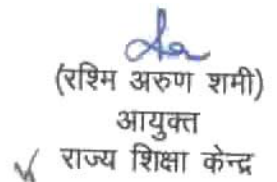 (रश्मि अरुण शमी)
आयुक्त
राज्य शिक्षा केन्द्र